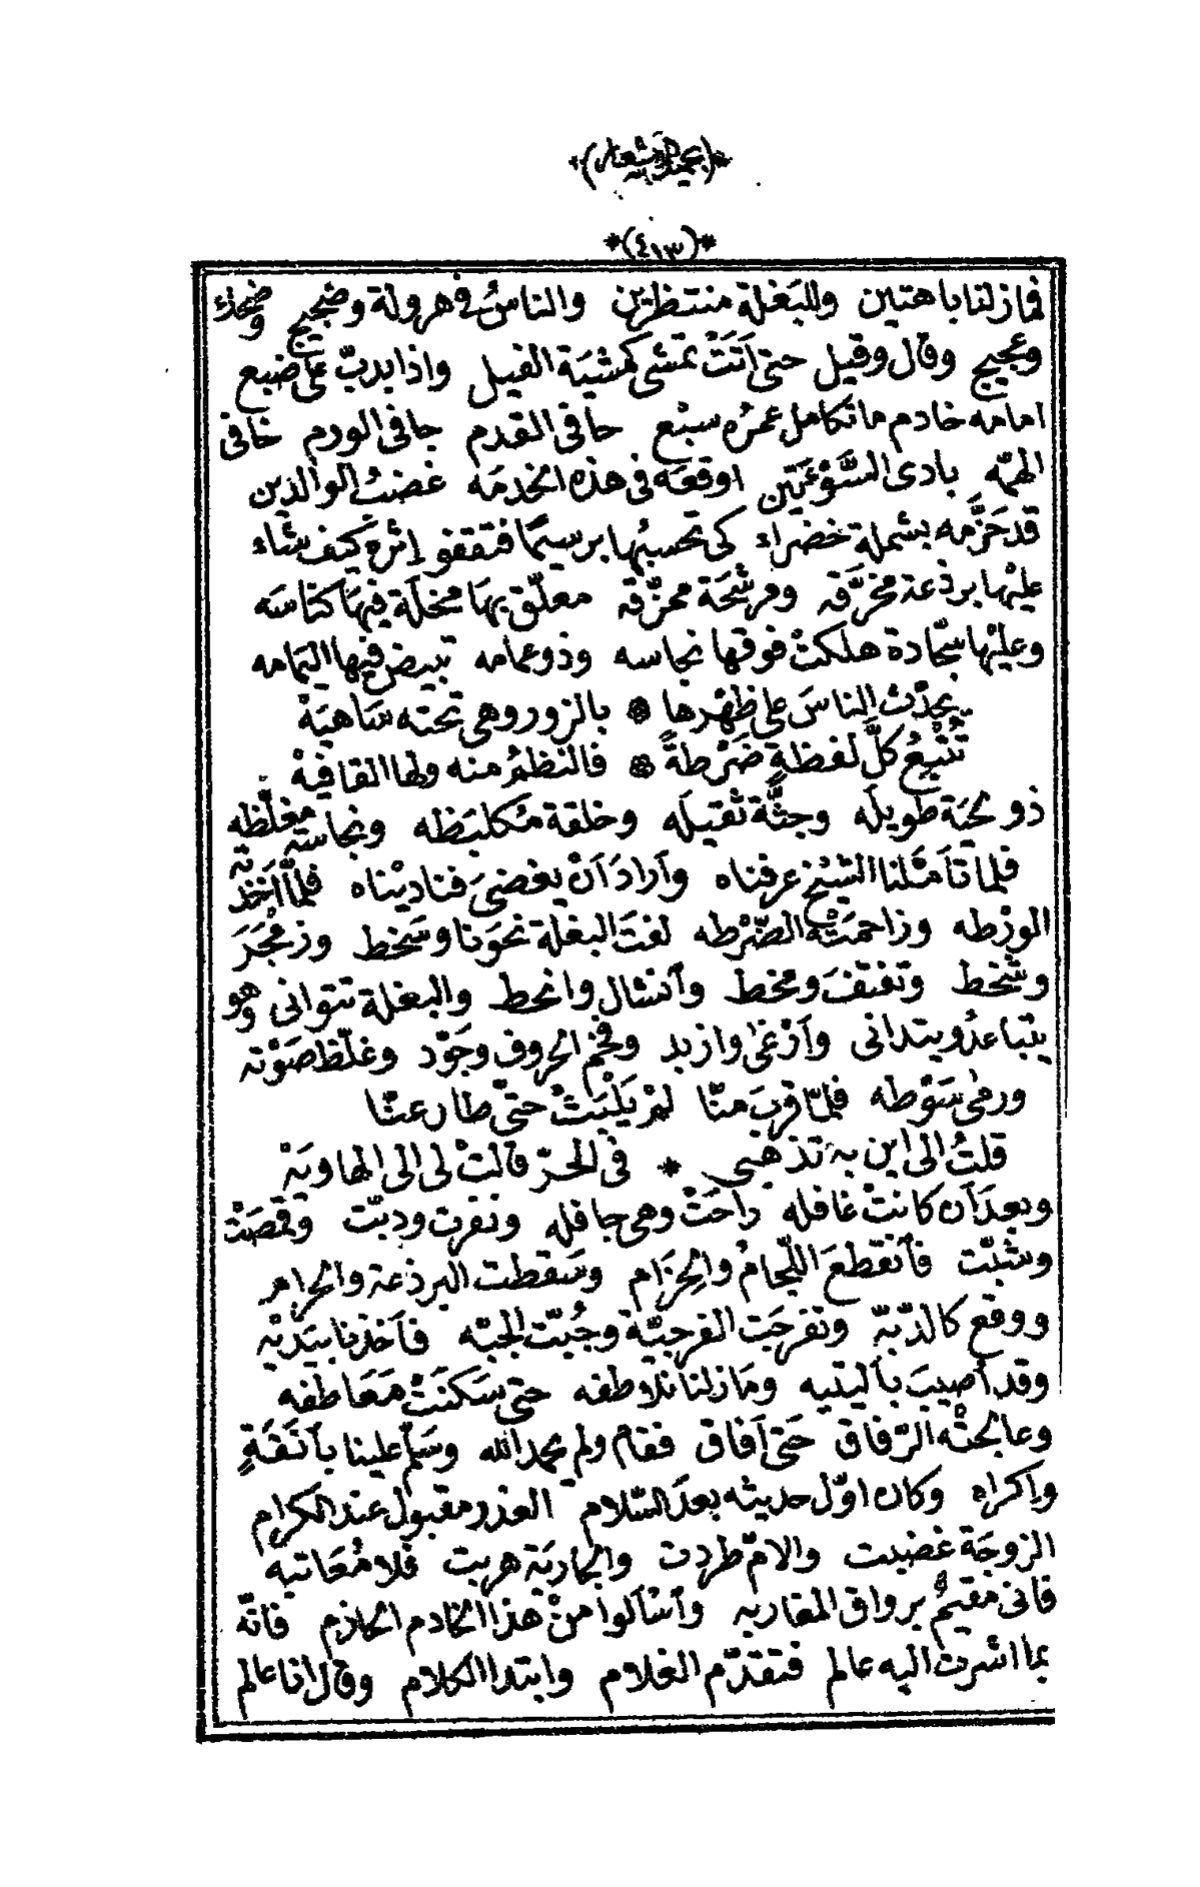 *(٤١٣)*
فما زلنا باهتين وللبغلة منتظرين والناسُ في هرولة وضجيج وضجاء
وعجيج وقال وقيل حتى أتَتْ تمشى كمشيَة الفيل واذا يدبّ على ضبع
امامه خادم ما تكامل عمرُه سبْع حافى القدم جافى الورم خافى
الهمّه بادى السَّوْءَتين اوقعَه في هذه الخدمَه غضبُ الوالدين
قد حَزَّمه بشملة خضراء كى تحسبُها برسيمًا فتقفو إثرَه كيف شاء
عليْها برذعة مخرَّقه ومرشحَة ممزّقه معلّق بهَا مخلَاة فيهَا كناسَه
وعليْها سجّادة هلكتْ فوقها نجاسه وذو عمامه تبيض فيها اليمامه
يحدّث الناسَ على ظهْرها * بالزور وهى تحته سَاهيَهْ
تُتْبعُ كلَّ لفظةٍ ضَرْطةً * فالنظمُ منه ولها القافيهْ
ذو لحيَة طويله وجثَّة ثقيلَه وخلقة مُكلبَظه ونجاسة مغلّظه
فلما تأمّلنا الشيْخ عرفناه وأرادَ أنْ يغضىَ فناديْناه فلمّا أخذَته
الورْطه وزاحمَتْه الضّرْطه لفتَ البغلة نحوَنا وسَخط وزمْجَرَ
وشْخط وتفتفَ ومخط وأنشال وانحط والبغلة تتوانى وهو
يتباعدُ ويتدانى وأرْغى وازبد وفخم الحروف وجَوّد وغلّظ صَوْته
ورمى سَوْطه فلمّا قربَ منّا لمْ يَلْبَثْ حتىّ طار عنّا
قلتُ الى اين به تذهبى * في الحرّ قالتْ لى الى الهاويَهْ
وبعدَ أن كَانتْ غافله راحَتْ وهى جافله ونفرت ودبّت وقمصَتْ
وشبّت فأنقطعَ اللّجامُ والحِزَام وسَقطت البرذعة والحرام
ووقع كالدّبّه وتفرجَت الفرجيّة وجُبّت الجبّه فأخذنا بيَدَيْه
وقد أُصيبَ بأليتيه ومَا زلنا نلاطفه حتى سَكنَتْ مَعَاطفه
وعالجتْه الرّفاق حَتى أفاق فقام ولم يحمد الله وسَلّم علينا بأنَفَةٍ
وإكراه وكان اوّل حديثه بعدَ السّلام العذر مقبول عند الكرام
الزوجَة غضبت والامّ طردت والجاريَة هربت فلا مُعَاتبه
فانى مقيمٌ برواق المغاربه وأسْألوا منْ هذا الخادم الحاذم فانّه
بما اشرت اليه عالم فتقدّم الغلام وابتدا الكلام وقال انا عالم